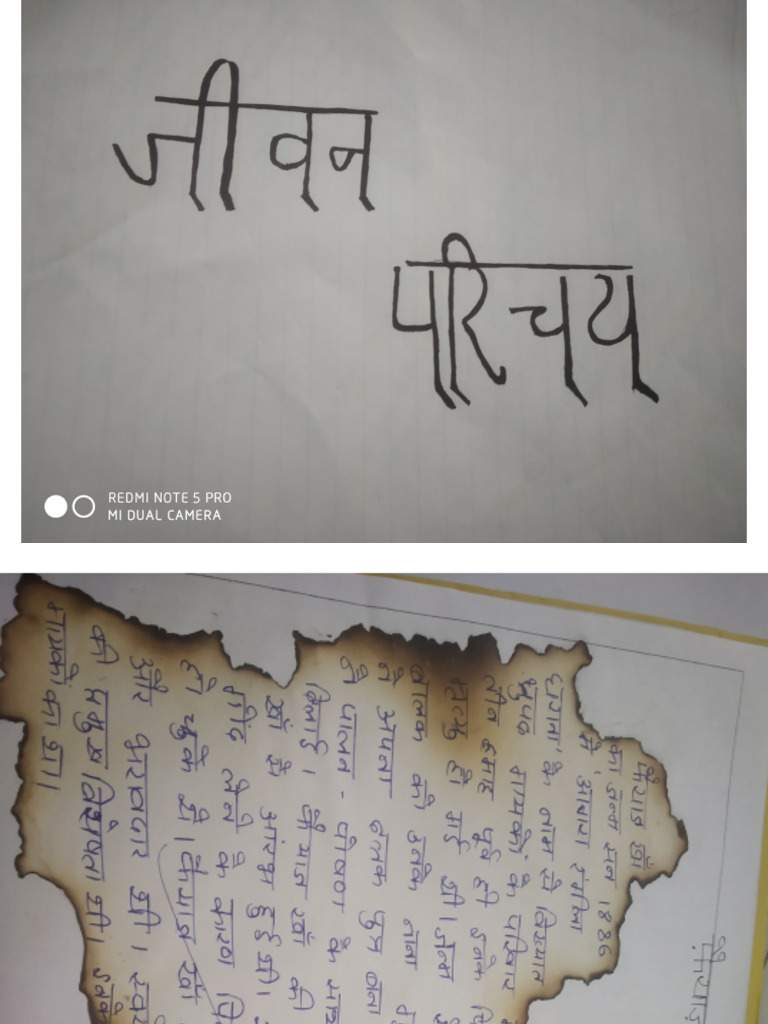 जीवन
परिचय
REDMI NOTE 5 PRO
MI DUAL CAMERA
फैयाज़
फैयाज खाँ
का जन्म सन 1886
में 'आगरा रंगीला
घराना' के नाम से विख्यात
ध्रुपद गायकों के परिवार
तीन माह पूर्व ही इनके
मृत्यु हो गई थी। जन्म
बालक को उनके नाना
ने अपना दत्तक पुत्र बना
ने पालन - पोषण के साथ
मिलाई। फैयाज खाँ की
खाँ से आरंभ हुई थी।
गोद लेने के कारण
हो चुके थे। फैयाज खाँ
और धारदार थी। स्वर
की प्रमुख विशेषता थी। इनके
गायकों का था।